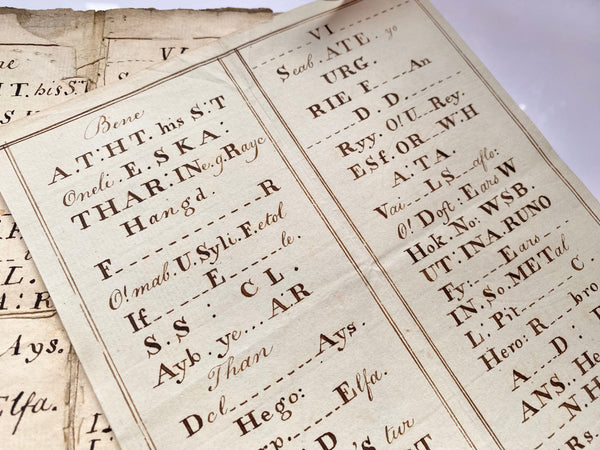 VI
his S:T
Ays.
Elfa.
Bene
A.T:HT. his S:T
Oneli E.SKA:
THAR:IN e.g Rayc
Hangd.
F R
O! mab. U. Syli. F. etol
If E le.
S.S : CL.
Ayb. ye... A:R
Than
Del Ays.
Hego: Elfa.
VI
Seab. ATE. yo
URG.
RIE F An
D D
Ryy. O! U Rey.
ESf. OR W.H
A:TA.
Vai LS aflo:
O! Doft: Ears W
Hok. No: WSB.
UT:INA RUNO
Fy: Ears
IN. So. METAl
L: Pit C.
Hero: R bro
A D:
ANS.. He
N.H